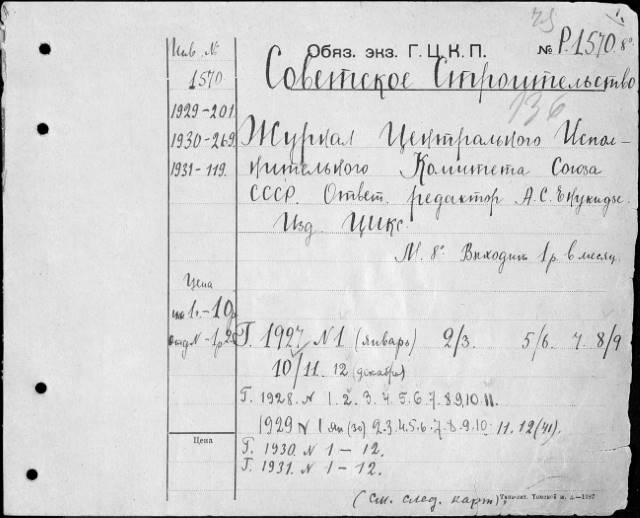 Инв. №
1570
1929-201.
1930-269.
1931-119.
Обяз. экз. Г.Ц.К.П.
№ Р.1570. 8°
Советское Строительство
136
Журнал Центрального Испол-
нительного Комитета Союза
СССР. Ответ. редактор А.С. Енукидзе.
Изд. ЦИКС.
М. 8° Выходит 1 р. в месяц.
Цена
на 1г.-10р
отд № - 1р 25
Г. 1927 N 1 (январь) 2/3. 5/6. 7. 8/9
10/11. 12 (декабрь)
Г. 1928. N 1. 2. 3. 4. 5. 6. 7. 8. 9. 10. 11.
1929 N 1 ян (30) 2. 3. 4. 5. 6. 7. 8. 9. 10. 11. 12 (41).
Цена
Г. 1930. N 1 — 12.
Г. 1931. N 1 — 12.
(См. след. карт)